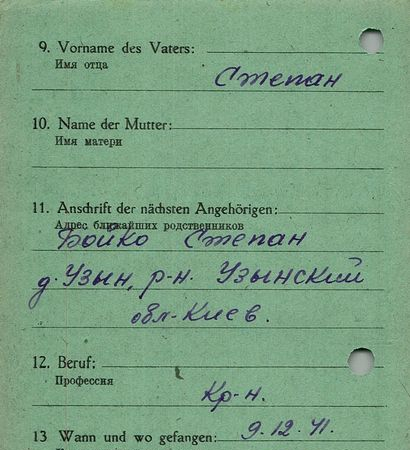 9. Vorname des Vaters:
Имя отца
Степан
10. Name der Mutter:
Имя матери
11. Anschrift der nächsten Angehörigen:
Адрес ближайших родственников
Бойко Степан
д. Узын, р-н. Узынский
обл-Киев.
12. Beruf:
Профессия
Кр-н.
13 Wann und wo gefangen: 9.12.41.